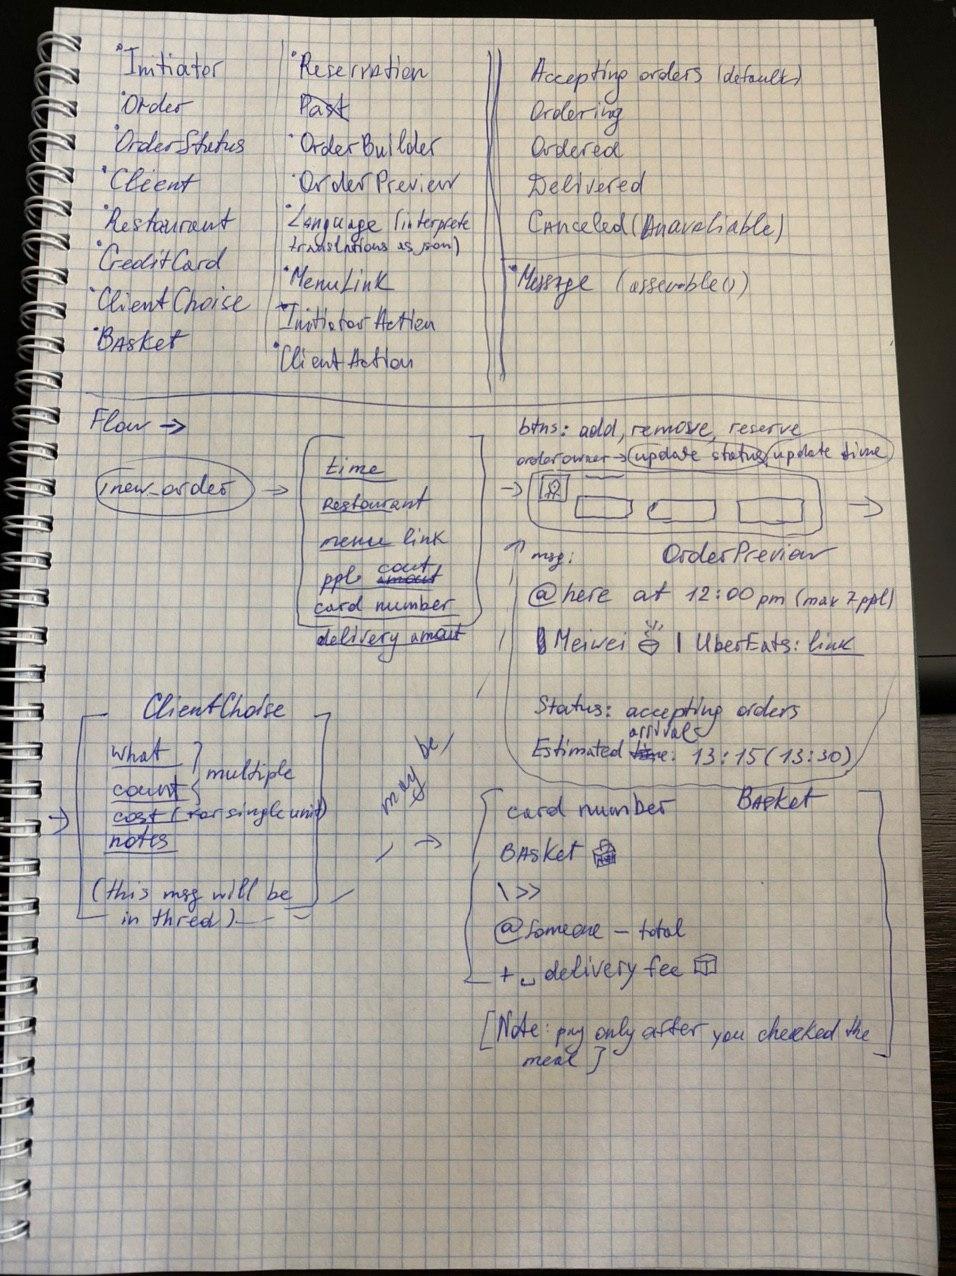 Initiator
Order
OrderStatus
Client
Restaurant
CreditCard
ClientChoise
Basket
Reservation
Past
OrderBuilder
OrderPreview
Language (interprete
translations as json)
MenuLink
InitiatorAction
ClientAction
Accepting orders (default)
Ordering
Ordered
Delivered
Canceled (Unavaliable)
Message (assemble())
Flow →
/new_order →
time
restaurant
menu link
ppl cout
amout
card number
delivery amout
btns: add, remove, reserve
order owner → update status, update time
msg: OrderPreview
@here at 12:00 pm (max 7 ppl)
Meiwei | UberEats: link
Status: accepting orders
arrival
Estimated time: 13:15 (13:30)
ClientChoise
what
count
multiple
cost (for single unit)
notes
(this msg will be
in thred)
may be
card number Basket
Basket
\>>
@someone – total
+ ␣ delivery fee
[Note: pay only after you checked the
meal]